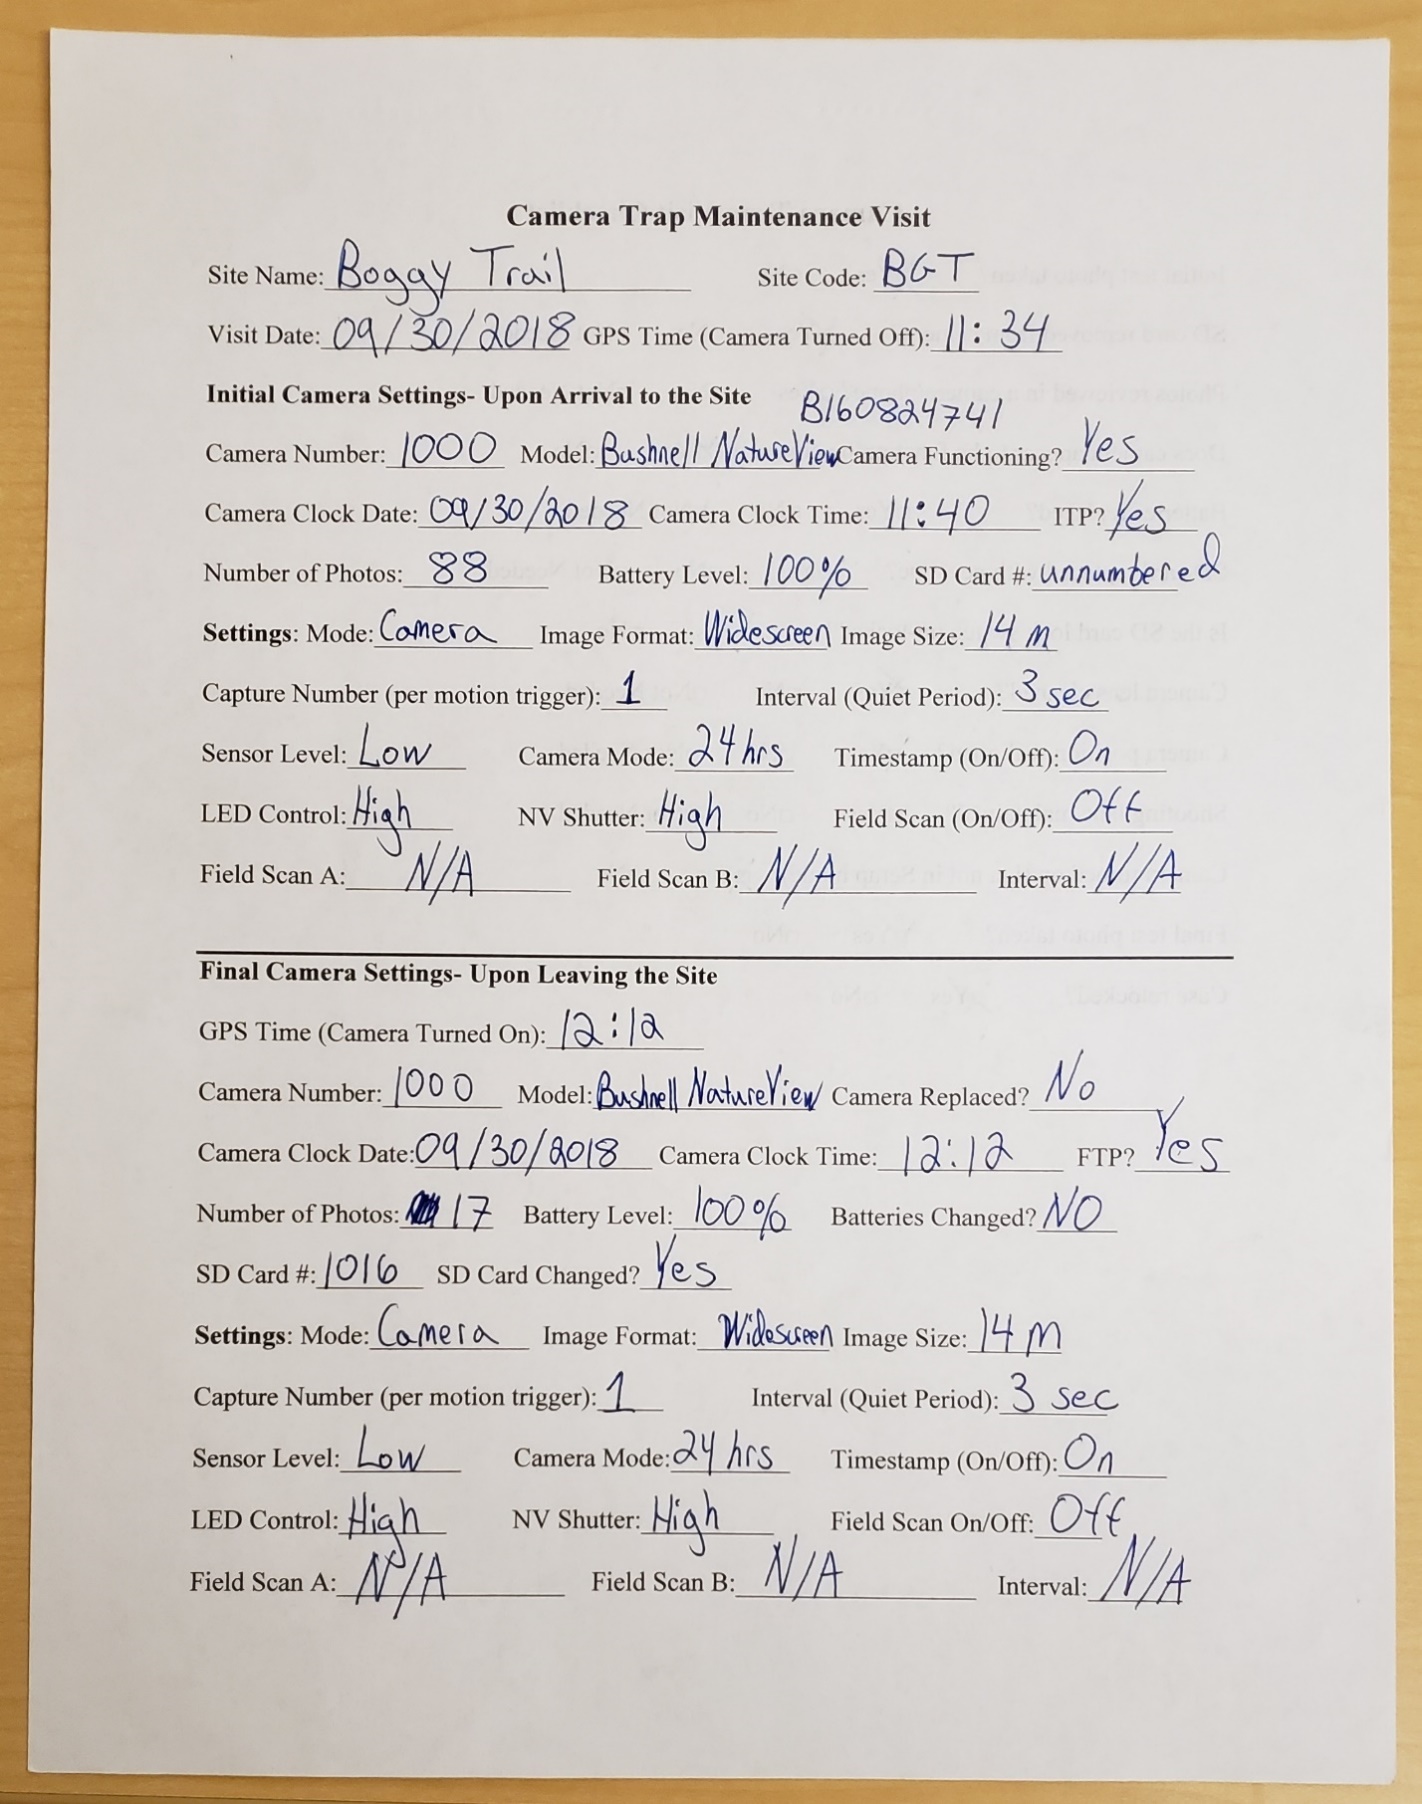 Camera Trap Maintenance Visit
Site Name: Boggy Trail Site Code: BGT
Visit Date: 09/30/2018 GPS Time (Camera Turned Off): 11:34
Initial Camera Settings- Upon Arrival to the Site B160824741
Camera Number: 1000 Model: Bushnell NatureView Camera Functioning? Yes
Camera Clock Date: 09/30/2018 Camera Clock Time: 11:40 ITP? Yes
Number of Photos: 88 Battery Level: 100% SD Card #: unnumbered
Settings: Mode: Camera Image Format: Widescreen Image Size: 14 m
Capture Number (per motion trigger): 1 Interval (Quiet Period): 3 sec
Sensor Level: Low Camera Mode: 24 hrs Timestamp (On/Off): On
LED Control: High NV Shutter: High Field Scan (On/Off): Off
Field Scan A: N/A Field Scan B: N/A Interval: N/A
Final Camera Settings- Upon Leaving the Site
GPS Time (Camera Turned On): 12:12
Camera Number: 1000 Model: Bushnell NatureView Camera Replaced? No
Camera Clock Date: 09/30/2018 Camera Clock Time: 12:12 FTP? Yes
Number of Photos: 17 Battery Level: 100% Batteries Changed? NO
SD Card #: 1016 SD Card Changed? Yes
Settings: Mode: Camera Image Format: Widescreen Image Size: 14 m
Capture Number (per motion trigger): 1 Interval (Quiet Period): 3 sec
Sensor Level: Low Camera Mode: 24 hrs Timestamp (On/Off): On
LED Control: High NV Shutter: High Field Scan On/Off: Off
Field Scan A: N/A Field Scan B: N/A Interval: N/A